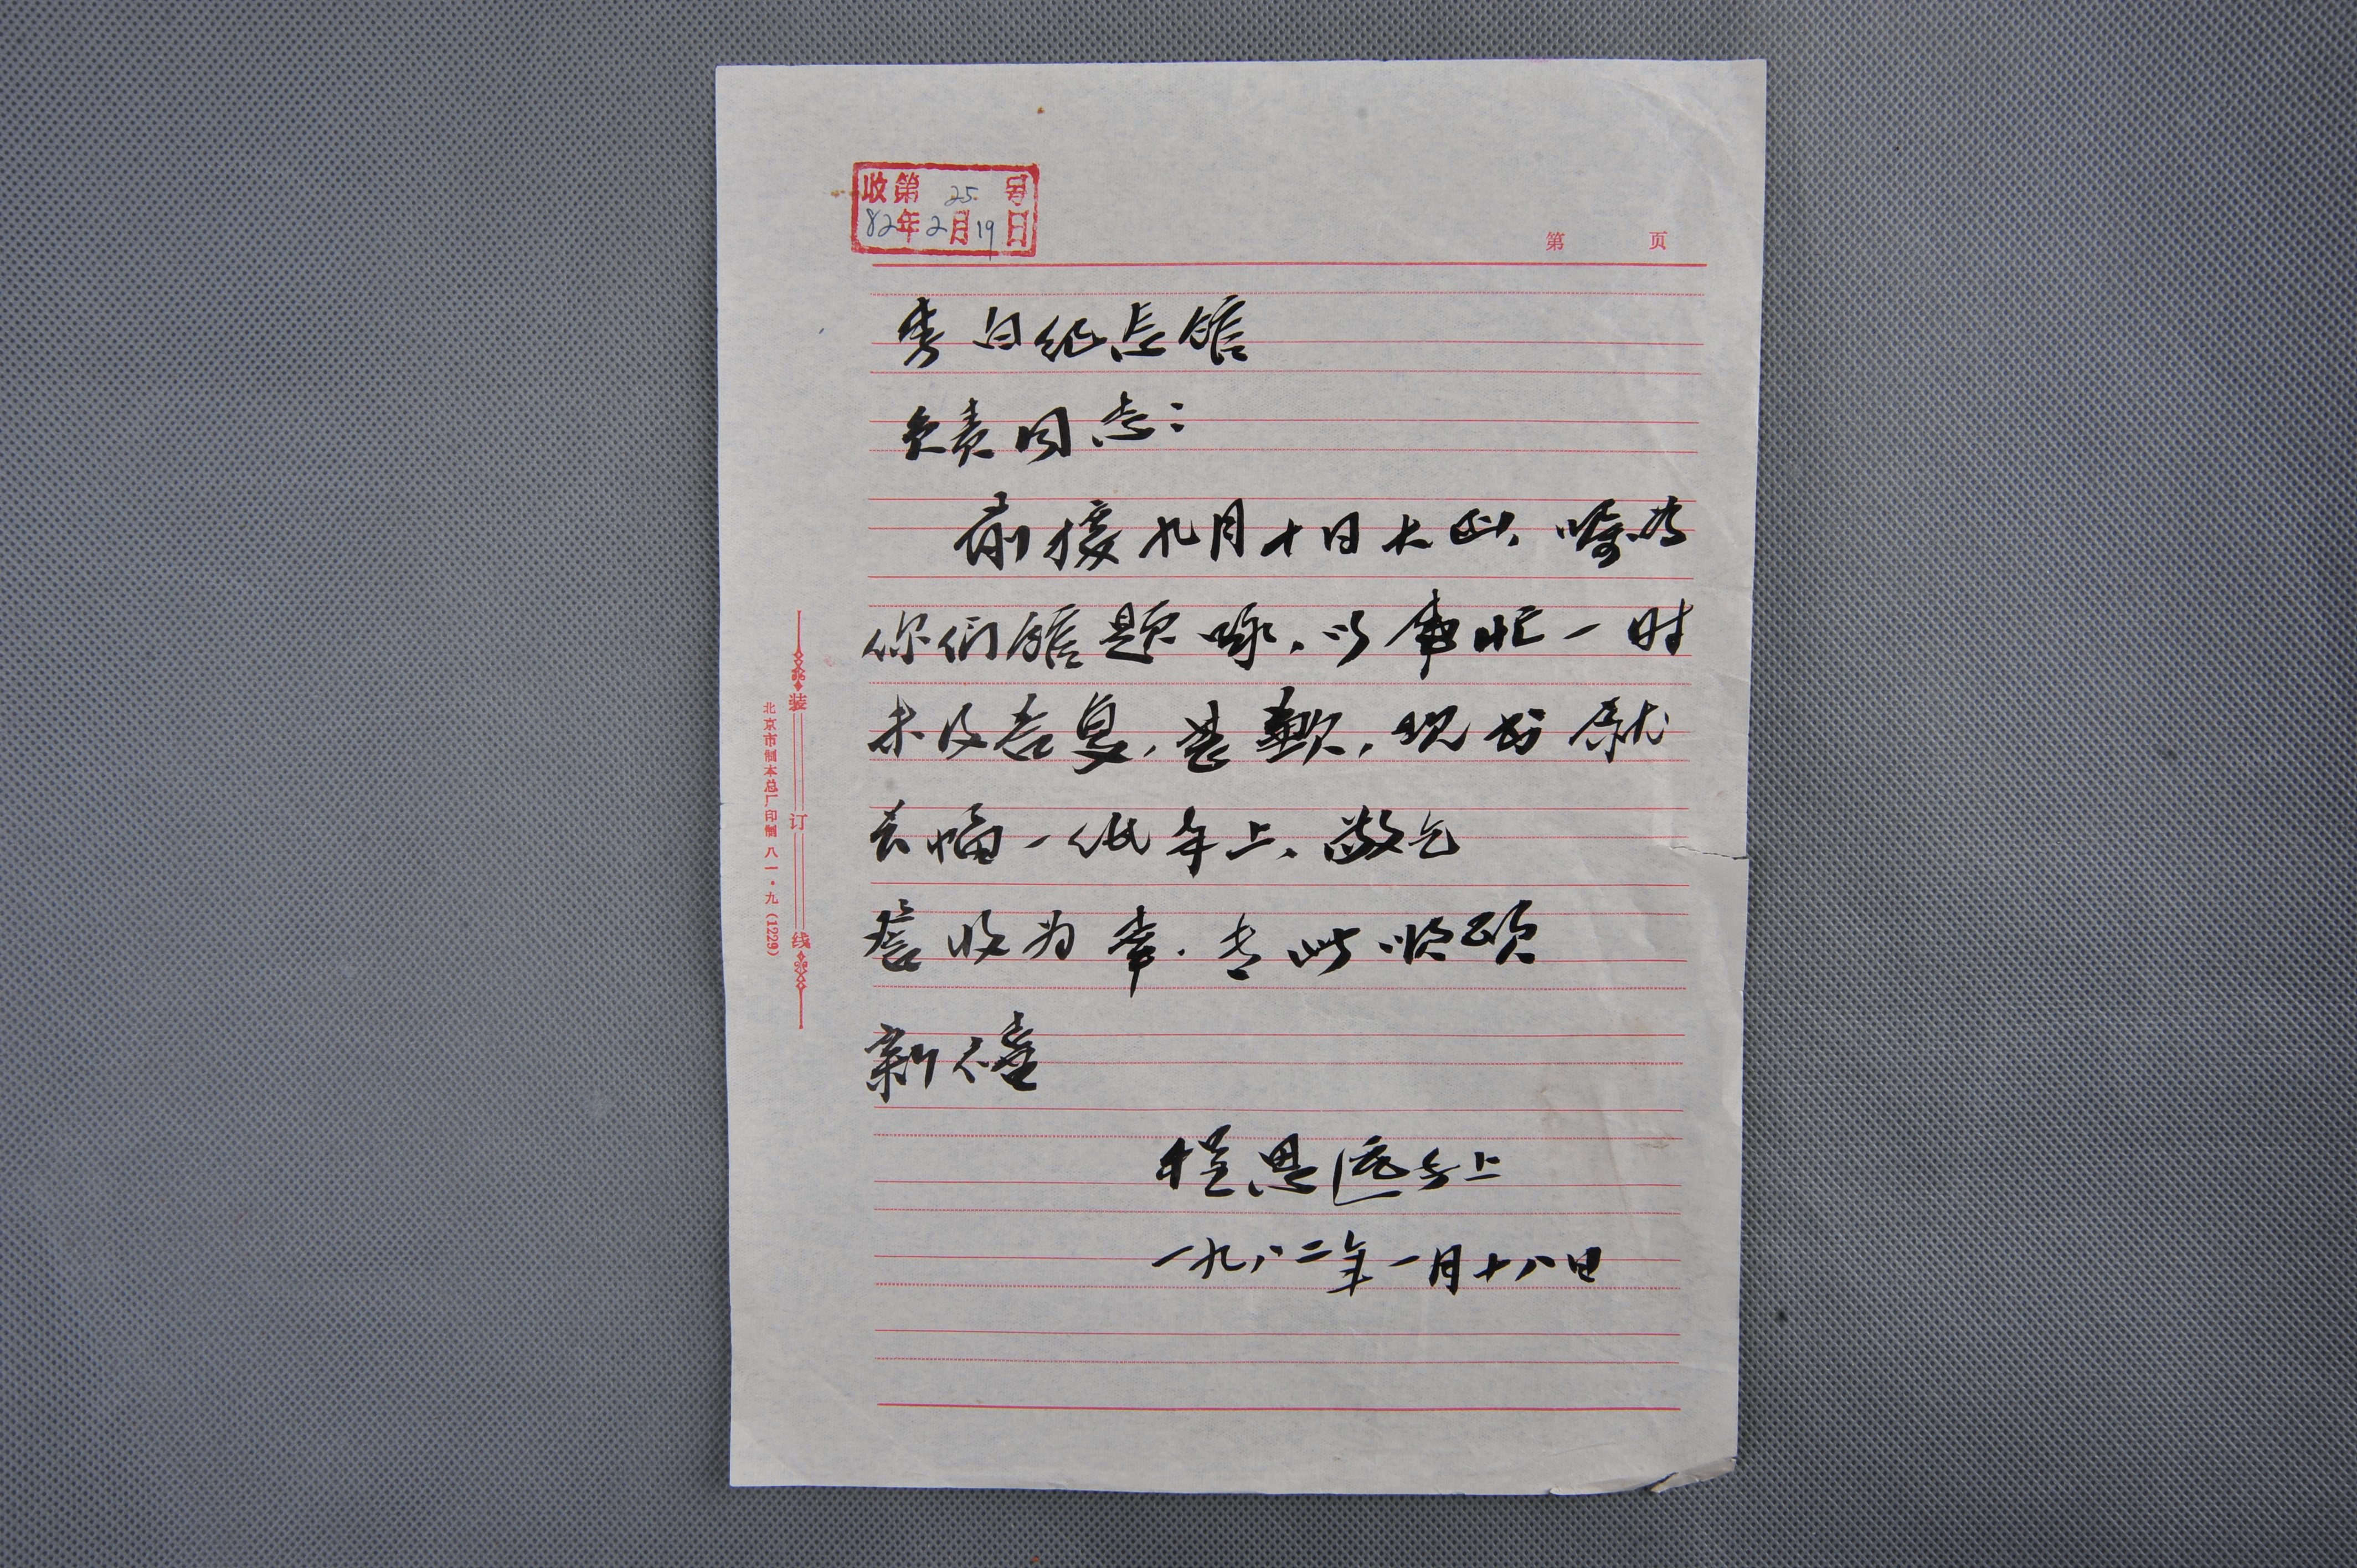 收第 25 号
82年2月19日
第 页
李白纪念馆
负责同志：
前接九月十日大函，嘱为
你们馆题咏，以事忙一时
未及答复，甚歉，现书就
长幅一纸奉上，敬乞
詧收为幸．专此顺颂
新禧
程思远手上
一九八二年一月十八日
装订线
北京市制本总厂印制 八一·九（1229）